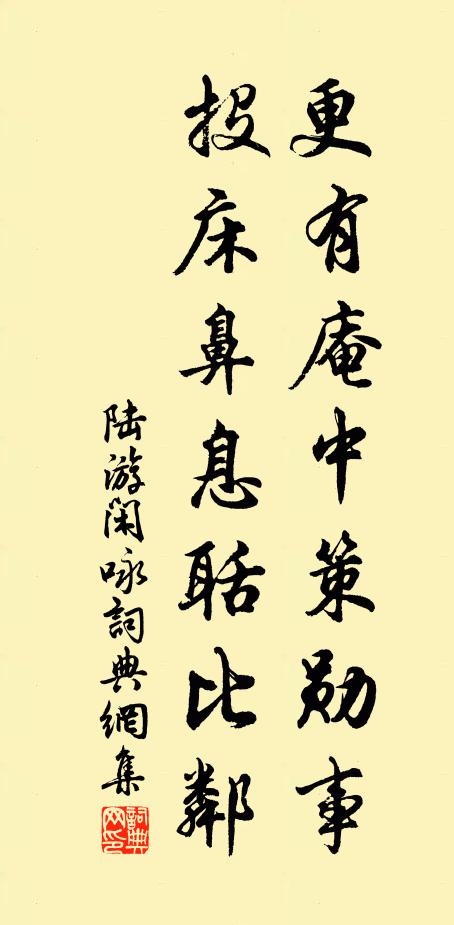 更有庵中策勋事
投床鼻息聒比鄰
陆游闲咏詞典網集
詞典网印